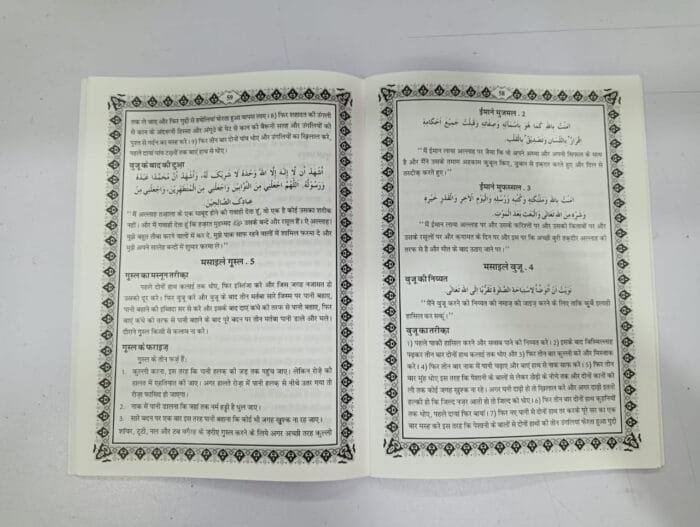 58
ईमाने मुजमल . 2
اٰمَنْتُ بِاللهِ كَمَا هُوَ بِاَسْمَآئِهٖ وَصِفَاتِهٖ وَقَبِلْتُ جَمِيْعَ اَحْكَامِهٖ
اِقْرَارٌۢ بِاللِّسَانِ وَتَصْدِيْقٌۢ بِالْقَلْبِ.
"मैं ईमान लाया अल्लाह पर जैसा कि वो अपने अस्मा और अपनी सिफ़ात के साथ
है और मैंने उसके तमाम अहकाम क़ुबूल किए, ज़ुबान से इक़रार करते हुए और दिल से
तस्दीक़ करते हुए।"
ईमाने मुफ़स्सल . 3
اٰمَنْتُ بِاللهِ وَمَلٰٓئِكَتِهٖ وَكُتُبِهٖ وَرُسُلِهٖ وَالْيَوْمِ الْاٰخِرِ وَالْقَدْرِ خَيْرِهٖ
وَشَرِّهٖ مِنَ اللهِ تَعَالٰى وَالْبَعْثِ بَعْدَ الْمَوْتِ.
"मैं ईमान लाया अल्लाह पर और उसके फ़रिश्तों पर और उसकी किताबों पर और
उसके रसूलों पर और क़यामत के दिन पर और इस पर कि अच्छी बुरी तक़दीर अल्लाह की
तरफ़ से है और मौत के बाद उठाए जाने पर।"
मसाइले वुज़ू . 4
वुज़ू की निय्यत
نَوَيْتُ اَنْ اَتَوَضَّأَ لِاسْتِبَاحَةِ الصَّلٰوةِ تَقَرُّبًا اِلَى اللهِ تَعَالٰى.
"मैंने वुज़ू करने की निय्यत की नमाज़ को जाइज़ करने के लिए ताकि क़ुर्बे इलाही
हासिल कर सकूं।"
वुज़ू का तरीक़ा
1) पहले पाकी हासिल करने और सवाब पाने की निय्यत करे। 2) इसके बाद बिस्मिल्लाह
पढ़कर तीन बार दोनों हाथ कलाई तक धोए और 3) फिर तीन बार कुल्ली करे और मिस्वाक
करे। 4) फिर तीन बार नाक में पानी चढ़ाए और बाएं हाथ से नाक साफ़ करे। 5) फिर तीन
बार मुंह धोए इस तरह कि पेशानी के बालों से लेकर ठोड़ी के नीचे तक और दोनों कानों की
लौ तक कोई जगह ख़ुश्क न रहे। अगर घनी दाढ़ी हो तो ख़िलाल करे और अगर दाढ़ी इतनी
हल्की हो कि जिल्द नज़र आती हो तो जिल्द को धोए। 6) फिर तीन बार दोनों हाथ कुहनियों
तक धोए, पहले दायां फिर बायां। 7) फिर नए पानी से दोनों हाथ तर करके पूरे सर का एक
बार मसह करे इस तरह कि पेशानी के बालों से दोनों हाथों की तीन उंगलियां फेरता हुआ गुद्दी
59
तक ले जाए और फिर गुद्दी से हथेलियां फेरता हुआ वापस लाए। 8) फिर शहादत की उंगली
से कान के अंदरूनी हिस्सा और अंगूठे के पेट से कान की बैरूनी सतह और उंगलियों की
पुश्त से गर्दन का मसह करे। 9) फिर तीन बार दोनों पांव धोए और उंगलियों का ख़िलाल करे,
पहले दायां पांव टख़नों तक बाएं हाथ से धोए।
वुज़ू के बाद की दुआ
اَشْهَدُ اَنْ لَّا اِلٰهَ اِلَّا اللهُ وَحْدَهٗ لَا شَرِيْكَ لَهٗ، وَاَشْهَدُ اَنَّ مُحَمَّدًا عَبْدُهٗ
وَرَسُوْلُهٗ. اَللّٰهُمَّ اجْعَلْنِيْ مِنَ التَّوَّابِيْنَ وَاجْعَلْنِيْ مِنَ الْمُتَطَهِّرِيْنَ، وَاجْعَلْنِيْ مِنْ
عِبَادِكَ الصَّالِحِيْنَ
"मैं अल्लाह तआला के एक माबूद होने की गवाही देता हूं, वो एक है कोई उसका शरीक
नहीं। और मैं गवाही देता हूं कि हज़रत मुहम्मद उसके बन्दे और रसूल हैं। ऐ अल्लाह!
मुझे बहुत तौबा करने वालों में कर दे, मुझे पाक साफ़ रहने वालों में शामिल फरमा दे और
मुझे अपने सालेह बन्दों में शुमार फरमा ले।"
मसाइले ग़ुस्ल . 5
ग़ुस्ल का मस्नून तरीक़ा
पहले दोनों हाथ कलाई तक धोए, फिर इस्तिंजा करे और जिस जगह नजासत हो
उसको दूर करे। फिर वुज़ू करे और वुज़ू के बाद तीन मर्तबा सारे जिस्म पर पानी बहाए,
पानी बहाने की इब्तिदा सर से करे और इसके बाद दाएं कंधे की तरफ़ से पानी बहाए, फिर
बाएं कंधे की तरफ़ से पानी बहाने के बाद पूरे बदन पर तीन मर्तबा पानी डाले और मले।
दौराने ग़ुस्ल किसी से कलाम ना करे।
ग़ुस्ल के फराइज़
ग़ुस्ल के तीन फर्ज़ हैं:
1. कुल्ली करना, इस तरह कि पानी हलक़ की जड़ तक पहुंच जाए। लेकिन रोज़े की
हालत में एहतियात की जाए। अगर हालते रोज़ा में पानी हलक़ से नीचे उतर गया तो
रोज़ा फ़ासिद हो जाएगा।
2. नाक में पानी डालना कि जहां तक नर्म हड्डी है धुल जाए।
3. सारे बदन पर एक बार इस तरह पानी बहाना कि कोई भी जगह ख़ुश्क ना रह जाए।
शॉवर, टूटी, नल और टब वग़ैरह के ज़रीए ग़ुस्ल करने के लिये अगर अच्छी तरह कुल्ली